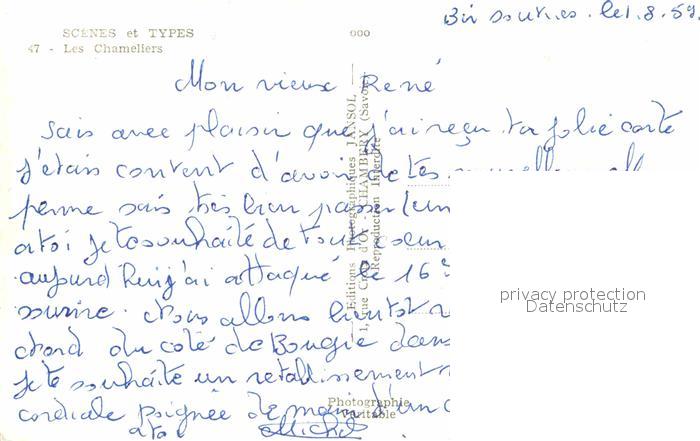 SCÈNES et TYPES
47 - Les Chameliers
ooo
Bir souries. le 1.8.59.
Mon vieux René
sais avec plaisir que j'ai reçu ta jolie carte
j'étais content d'avoir de tes
perme sais très bien passer
a toi je te souhaite de tout coeur
aujourd'hui j'ai attaqué le 16e
sourire. Nous allons bientot
du coté de Bougie dans
je te souhaite un retablissement
cordiale poignée de main d'un
a toi Michel
Editions Photographiques JANSOL
1, rue Croix d'Or - CHAMBERY (Savoie)
Reproduction Interdite
Photographie
Véritable
privacy protection
Datenschutz